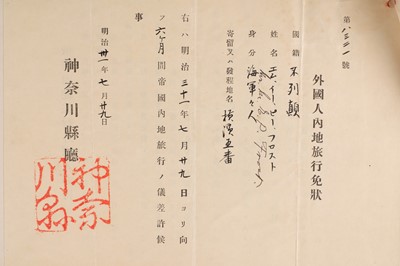 第八三二一號
外國人內地旅行免狀
國籍 不列顛
姓名 エム、イー、ピー、フロスト
身分 海軍々人
寄留又ハ發程地名 橫濱五番
右ハ明治三十一年七月廿九日ヨリ向
フ六ケ月間帝國內地旅行ノ儀差許候
事
明治卅一年七月廿九日
神奈川縣廳
神奈
川縣